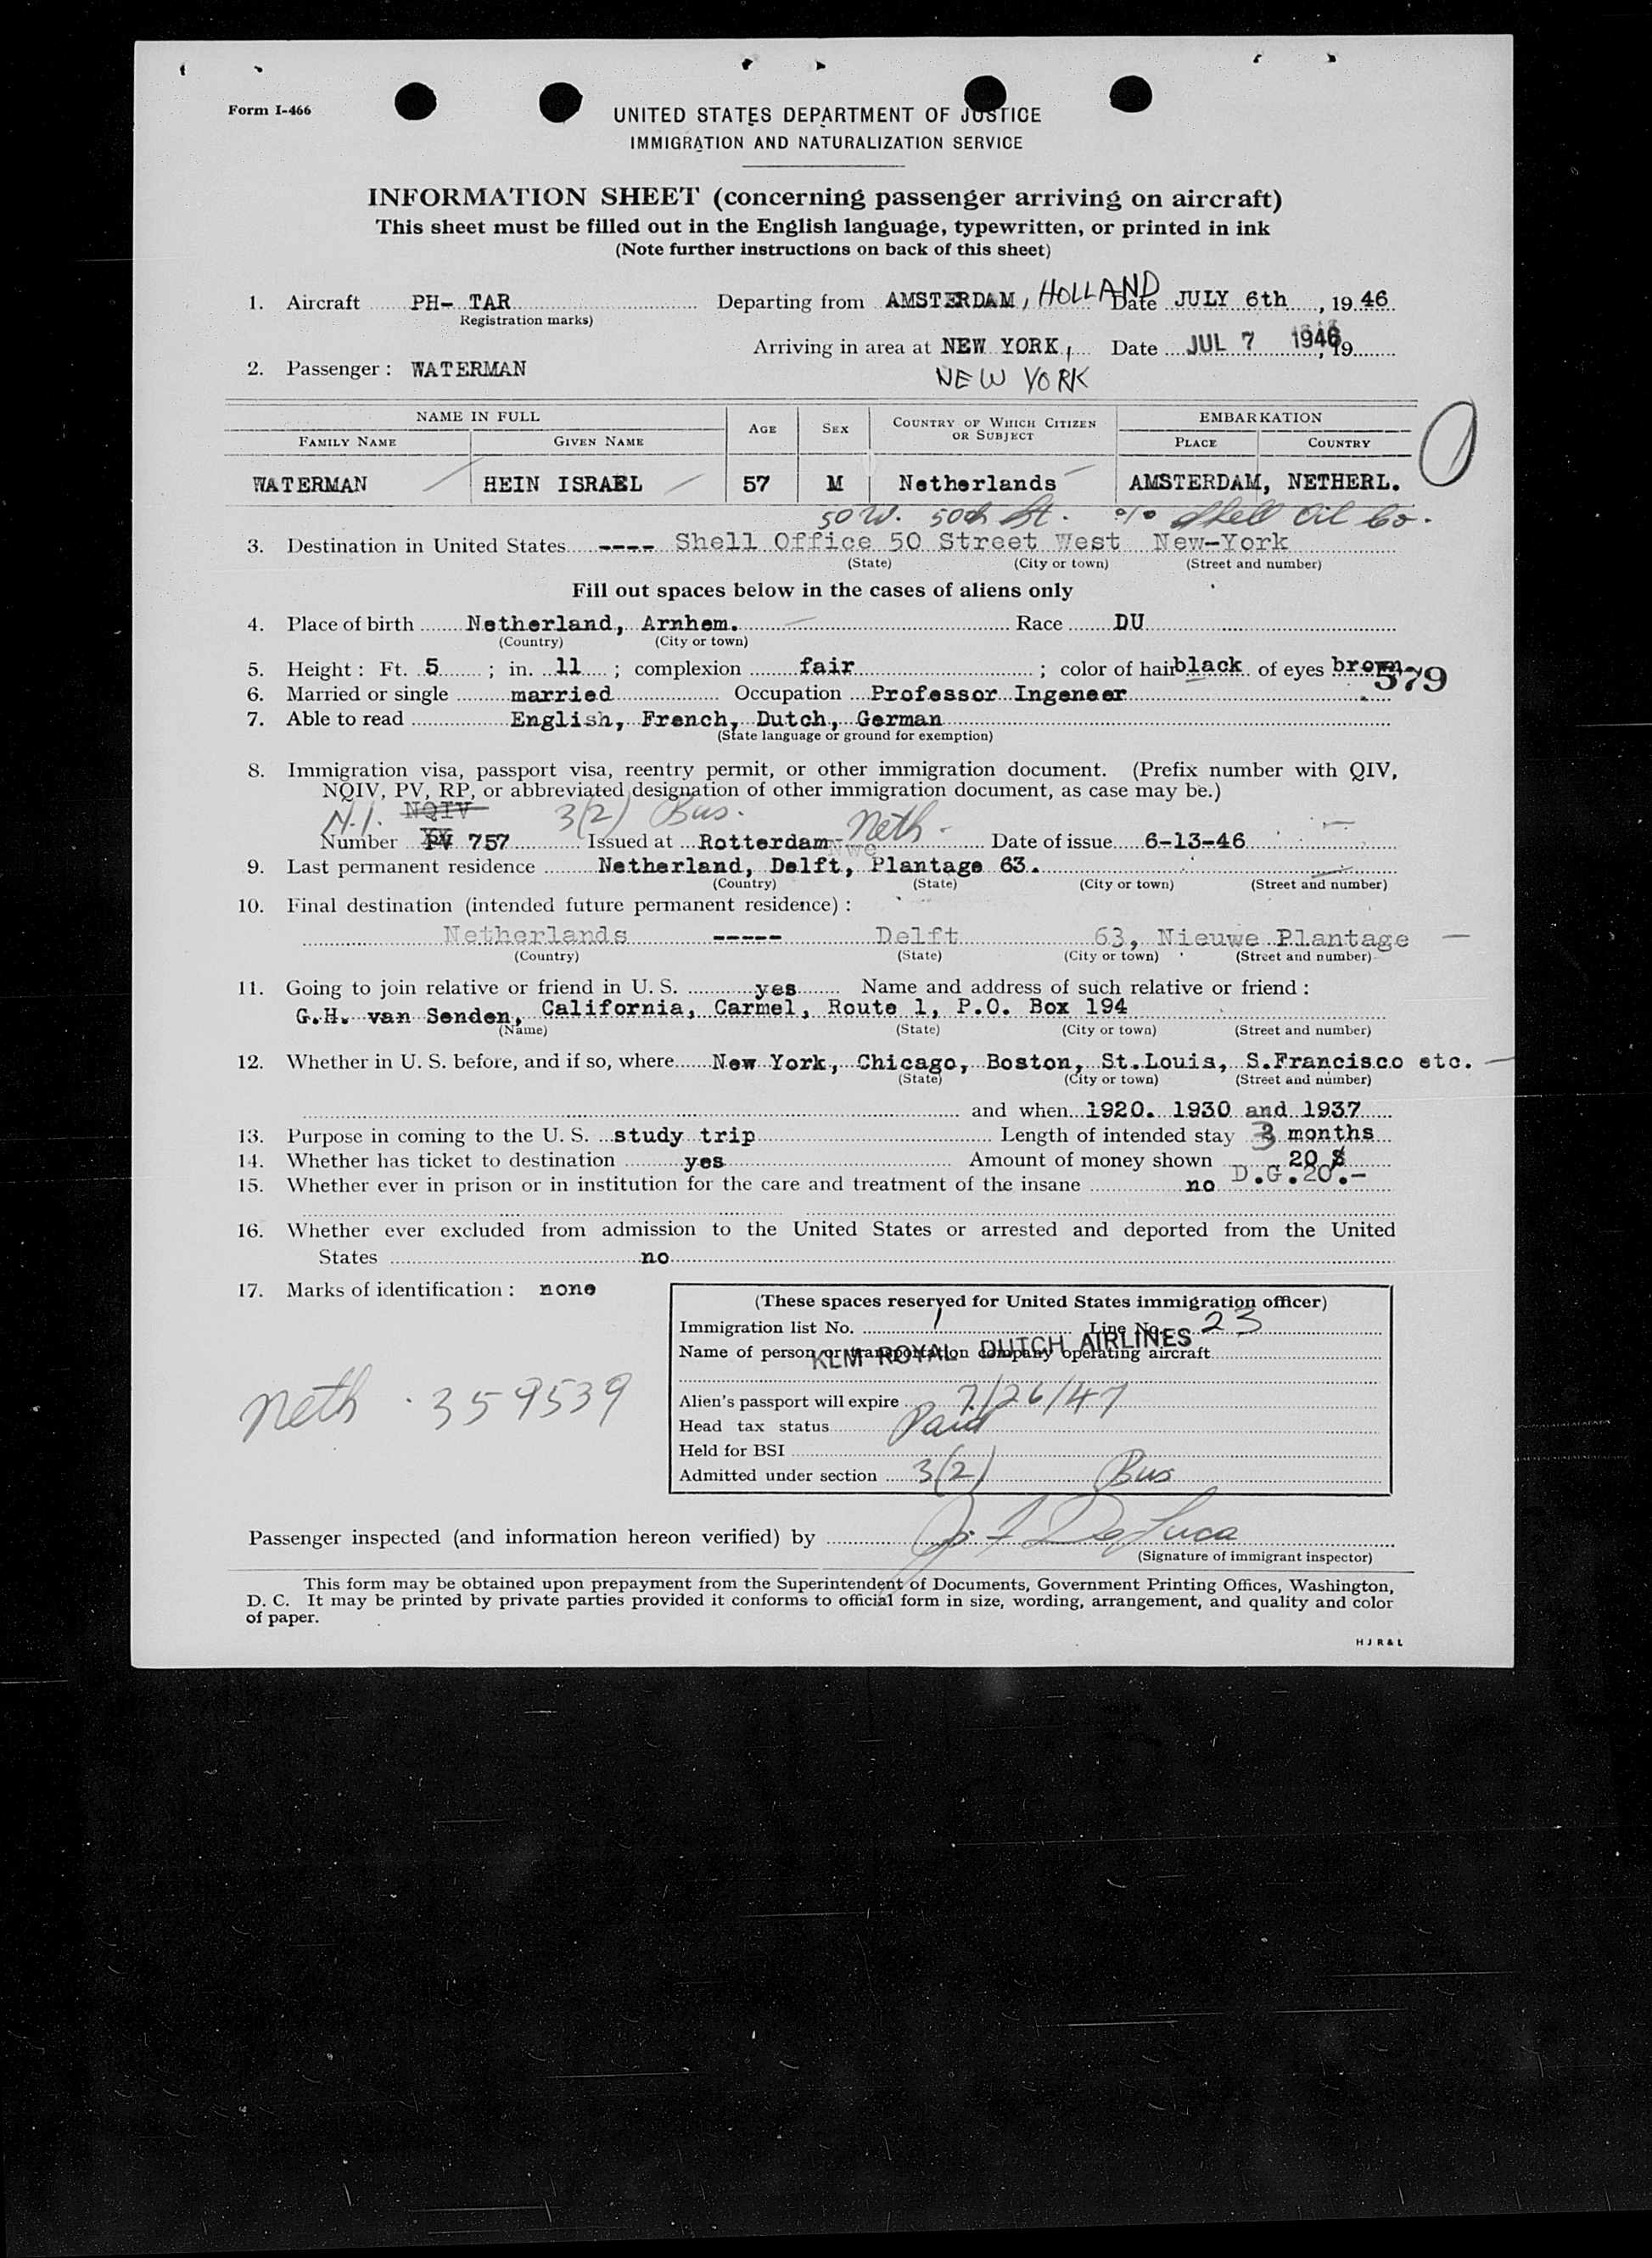 Form I-466
UNITED STATES DEPARTMENT OF JUSTICE
IMMIGRATION AND NATURALIZATION SERVICE
INFORMATION SHEET (concerning passenger arriving on aircraft)
This sheet must be filled out in the English language, typewritten, or printed in ink
(Note further instructions on back of this sheet)
1. Aircraft PH- TAR Departing from AMSTERDAM, HOLLAND Date JULY 6th, 1946
(Registration marks)
Arriving in area at NEW YORK, Date JUL 7 1946, 19
2. Passenger: WATERMAN NEW YORK
NAME IN FULL AGE SEX COUNTRY OF WHICH CITIZEN OR SUBJECT EMBARKATION
FAMILY NAME GIVEN NAME PLACE COUNTRY
WATERMAN HEIN ISRAEL 57 M Netherlands AMSTERDAM, NETHERL.
50 W. 50th St. c/o Shell Oil Co.
3. Destination in United States ---- Shell Office 50 Street West New-York
(State) (City or town) (Street and number)
Fill out spaces below in the cases of aliens only
4. Place of birth Netherland, Arnhem. Race DU
(Country) (City or town)
5. Height: Ft. 5; in. 11; complexion fair; color of hair black of eyes brown
579
6. Married or single married Occupation Professor Ingeneer
7. Able to read English, French, Dutch, German
(State language or ground for exemption)
8. Immigration visa, passport visa, reentry permit, or other immigration document. (Prefix number with QIV,
NQIV, PV, RP, or abbreviated designation of other immigration document, as case may be.)
N.I. NQIV 3(2) Bus.
Number PV 757 Issued at Rotterdam Neth. Date of issue 6-13-46
9. Last permanent residence Netherland, Delft, Nwe Plantage 63.
(Country) (State) (City or town) (Street and number)
10. Final destination (intended future permanent residence):
Netherlands ----- Delft 63, Nieuwe Plantage
(Country) (State) (City or town) (Street and number)
11. Going to join relative or friend in U. S. yes Name and address of such relative or friend:
G.H. van Senden, California, Carmel, Route 1, P.O. Box 194
(Name) (State) (City or town) (Street and number)
12. Whether in U. S. before, and if so, where New York, Chicago, Boston, St.Louis, S.Francisco etc.
(State) (City or town) (Street and number)
and when 1920. 1930 and 1937
13. Purpose in coming to the U. S. study trip Length of intended stay 3 months
14. Whether has ticket to destination yes Amount of money shown 20 $
15. Whether ever in prison or in institution for the care and treatment of the insane no D.G.20.-
16. Whether ever excluded from admission to the United States or arrested and deported from the United
States no
17. Marks of identification: none
(These spaces reserved for United States immigration officer)
Immigration list No. 1 Line No. 23
Name of person or transportation company operating aircraft
KLM ROYAL DUTCH AIRLINES
Neth. 359539
Alien's passport will expire 7/26/47
Head tax status Paid
Held for BSI
Admitted under section 3(2) Bus
Passenger inspected (and information hereon verified) by J. F. DeLuca
(Signature of immigrant inspector)
This form may be obtained upon prepayment from the Superintendent of Documents, Government Printing Offices, Washington,
D. C. It may be printed by private parties provided it conforms to official form in size, wording, arrangement, and quality and color
of paper.
HJR&L